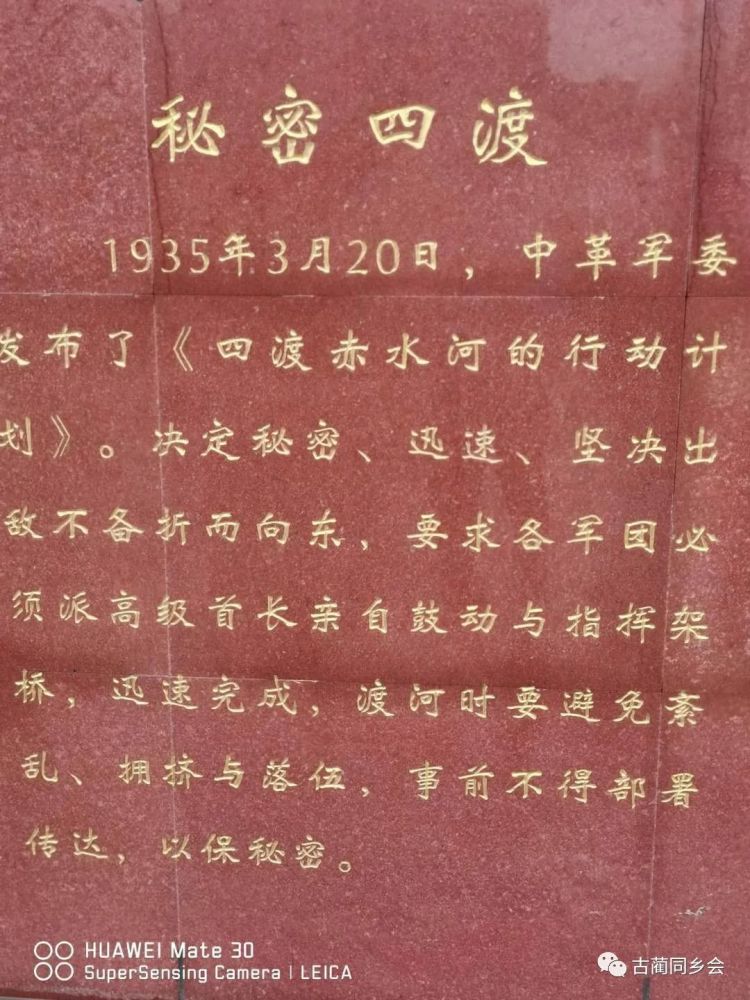 秘密四渡
1935年3月20日，中革军委
发布了《四渡赤水河的行动计
划》。决定秘密、迅速、坚决出
敌不备折而向东，要求各军团必
须派高级首长亲自鼓动与指挥架
桥，迅速完成，渡河时要避免紊
乱、拥挤与落伍，事前不得部署
传达，以保秘密。
HUAWEI Mate 30
SuperSensing Camera | LEICA
古蔺同乡会